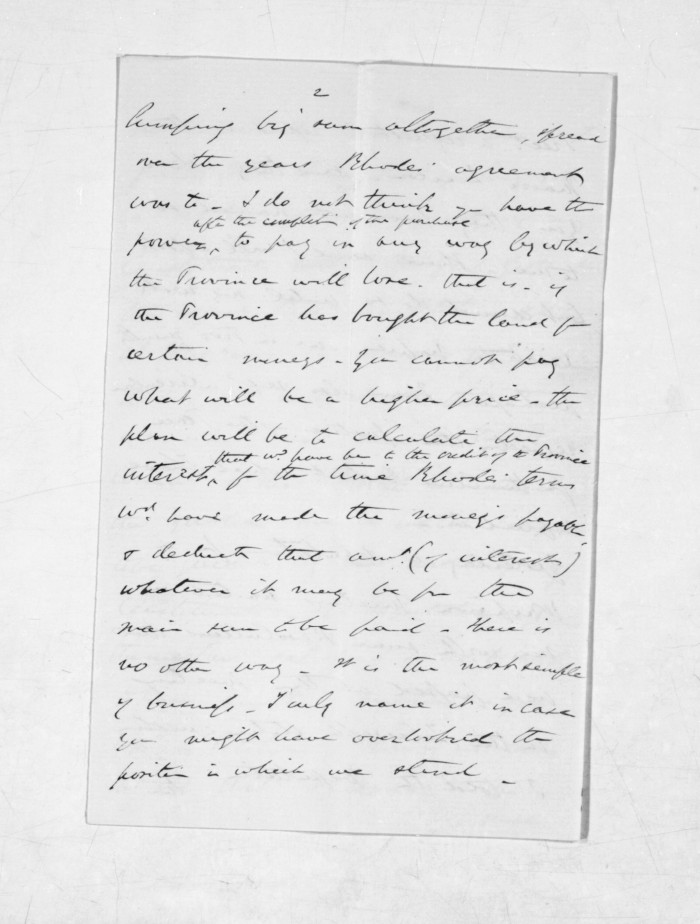 2
lumping big sum altogether, spread
over the years Rhodes' agreement
was to - I do not think you have the
after the completion of the purchase
power, to pay in any way by which
the Province will lose. that is - if
the Province has bought the land for
certain moneys - you cannot pay
what will be a higher price - the
plan will be to calculate the
that wd. have be to the credit of the Province
interest, for the time Rhodes' terms
wd. have made the moneys payable
& deduct that amt. (of interest)
whatever it may be from the
main sum to be paid - there is
no other way - it is the most simple
of business - I only name it in case
you might have overlooked the
position in which we stand -